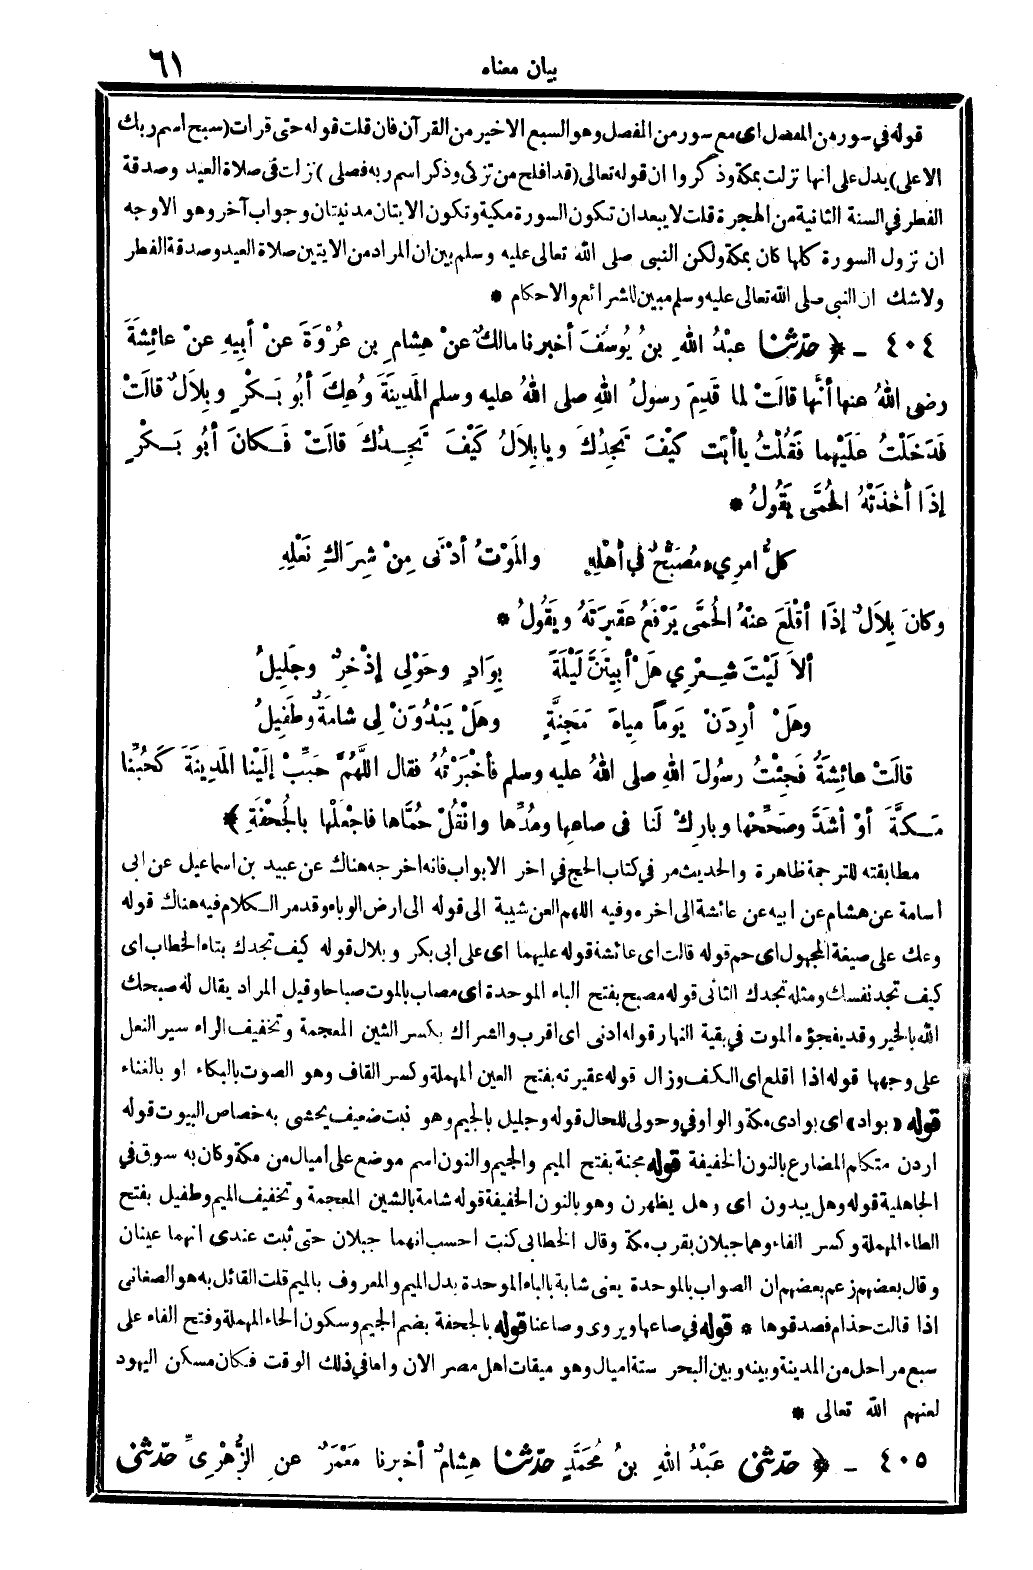 بيان معناه
٦١
قوله في سور من المفصل اى مع سور من المفصل وهو السبع الاخير من القرآن فان قلت قوله حتى قرات (سبح اسم ربك
الاعلى) يدل على انها نزلت بمكة وذكروا ان قوله تعالى (قد افلح من تزكى وذكر اسم ربه فصلى) نزلت فى صلاة العيد وصدقة
الفطر في السنة الثانية من الهجرة قلت لا يبعد ان تكون السورة مكية وتكون الايتان مدنيتان وجواب آخر وهو الاوجه
ان نزول السورة كلها كان بمكة ولكن النبى صلى الله تعالى عليه وسلم بين ان المراد من الايتين صلاة العيد وصدقة الفطر
ولاشك ان النبي صلى الله تعالى عليه وسلم مبين للشرائع والاحكام *
٤٠٤ ـ ﴿ حدّثنا عبْدُ اللهِ بنُ يُوسُفَ أخبرنا مالكٌ عنْ هِشامِ بن عُرْوَةَ عنْ أبيهِ عنْ عائِشَةَ
رضى اللهُ عنها أنَّها قالَتْ لما قَدِمَ رسولُ اللهِ صلى اللهُ عليه وسلم المَدِينَةَ وُعِكَ أبُو بَـكْرٍ وبِلاَلٌ قالَتْ
فَدَخَلْتُ عَلَيْهِما فَقُلْتُ ياأبَتِ كَيْفَ تَجِدُكَ ويابِلاَلُ كَيْفَ تَجِـدُكَ قالَتْ فَـكانَ أبُو بَـكْرٍ
إذَا أخَذَتْهُ الحُمَّى يَقُولُ *
كلُّ امرِيءٍ مُصَبَّحٌ في أهْلِهِ والمَوْتُ أدْنَى مِنْ شِرَاكِ نَعْلِهِ
وكانَ بِلاَلٌ إذَا أقْلَعَ عنْهُ الحُمَّى يَرْفَعُ عَقِيرَتَهُ ويَقُولُ *
ألاَ لَيْتَ شِـعْرِي هَلْ أبِيتَنَّ لَيْلَةً بِوَادٍ وحَوْلِى إذْخِرٌ وجَلِيلُ
وهَلْ أرِدَنْ يَوماً مِياهَ مَجَنَّةٍ وهَلْ يَبْدُوَنْ لِى شامَةٌ وطَفِيلُ
قالَتْ عائِشَةُ فَجِئْتُ رسُولَ اللهِ صلى اللهُ عليه وسلم فأخْبَرْتُهُ فقال اللَّهُمَّ حَبِّبْ إلَيْنا المَدِينَةَ كَحُبِّنا
مَـكَّةَ أوْ أشَدَّ وصَحِّحْها وبارِكْ لَنا فى صاعِها ومُدِّها وانْقُلْ حُمَّاها فاجْعَلْها بالجُحْفَةِ ﴾
مطابقته للترجمة ظاهرة والحديث مر في كتاب الحج في اخر الابواب فانه اخرجه هناك عن عبيد بن اسماعيل عن ابى
أسامة عن هشام عن ابيه عن عائشة الى اخره وفيه اللهم العن شيبة الى قوله الى ارض الوباء وقد مر الـكلام فيه هناك قوله
وعك على صيغة المجهول اى حم قوله قالت اى عائشة قوله عليهما اى على ابى بكر وبلال قوله كيف تجدك بتاء الخطاب اى
كيف تجد نفسك ومثله تجدك الثانى قوله مصبح بفتح الباء الموحدة اى مصاب بالموت صباحا وقيل المراد يقال له صبحك
الله بالخير وقد يفجؤه الموت في بقية النهار قوله ادنى اى اقرب والشراك بكسر الشين المعجمة وتخفيف الراء سير النعل
على وجهها قوله اذا اقلع اى الكف وزال قوله عقيرته بفتح العين المهملة وكسر القاف وهو الصوت بالبكاء او بالغناء
قوله «بواد» اى بوادى مكة والواو في وحولى للحال قوله وجليل بالجيم وهو نبت ضعيف يحشى به خصاص البيوت قوله
اردن متكلم المضارع بالنون الخفيفة قوله مجنة بفتح الميم والجيم والنون اسم موضع على اميال من مكة وكان به سوق في
الجاهلية قوله وهل يبدون اى وهل يظهرن وهو بالنون الخفيفة قوله شامة بالشين المعجمة وتخفيف الميم وطفيل بفتح
الطاء المهملة وكسر الفاء وهما جبلان بقرب مكة وقال الخطابى كنت احسب انهما جبلان حتى ثبت عندى انهما عينان
وقال بعضهم زعم بعضهم ان الصواب بالموحدة يعنى شابة بالباء الموحدة بدل الميم والمعروف بالميم قلت القائل به هو الصغانى
اذا قالت حذام فصدقوها * قوله في صاعها ويروى وصاعنا قوله بالجحفة بضم الجيم وسكون الحاء المهملة وفتح الفاء على
سبع مراحل من المدينة وبينه وبين البحر ستة اميال وهو ميقات اهل مصر الان واما في ذلك الوقت فكان مسكن اليهود
لعنهم الله تعالى *
٤٠٥ ـ ﴿ حدّثنى عَبْدُ اللهِ بنُ مُحَمَّدٍ حدّثنا هِشامٌ أخبرنا مَعْمَرٌ عنِ الزُّهْرِىِّ حدّثنى